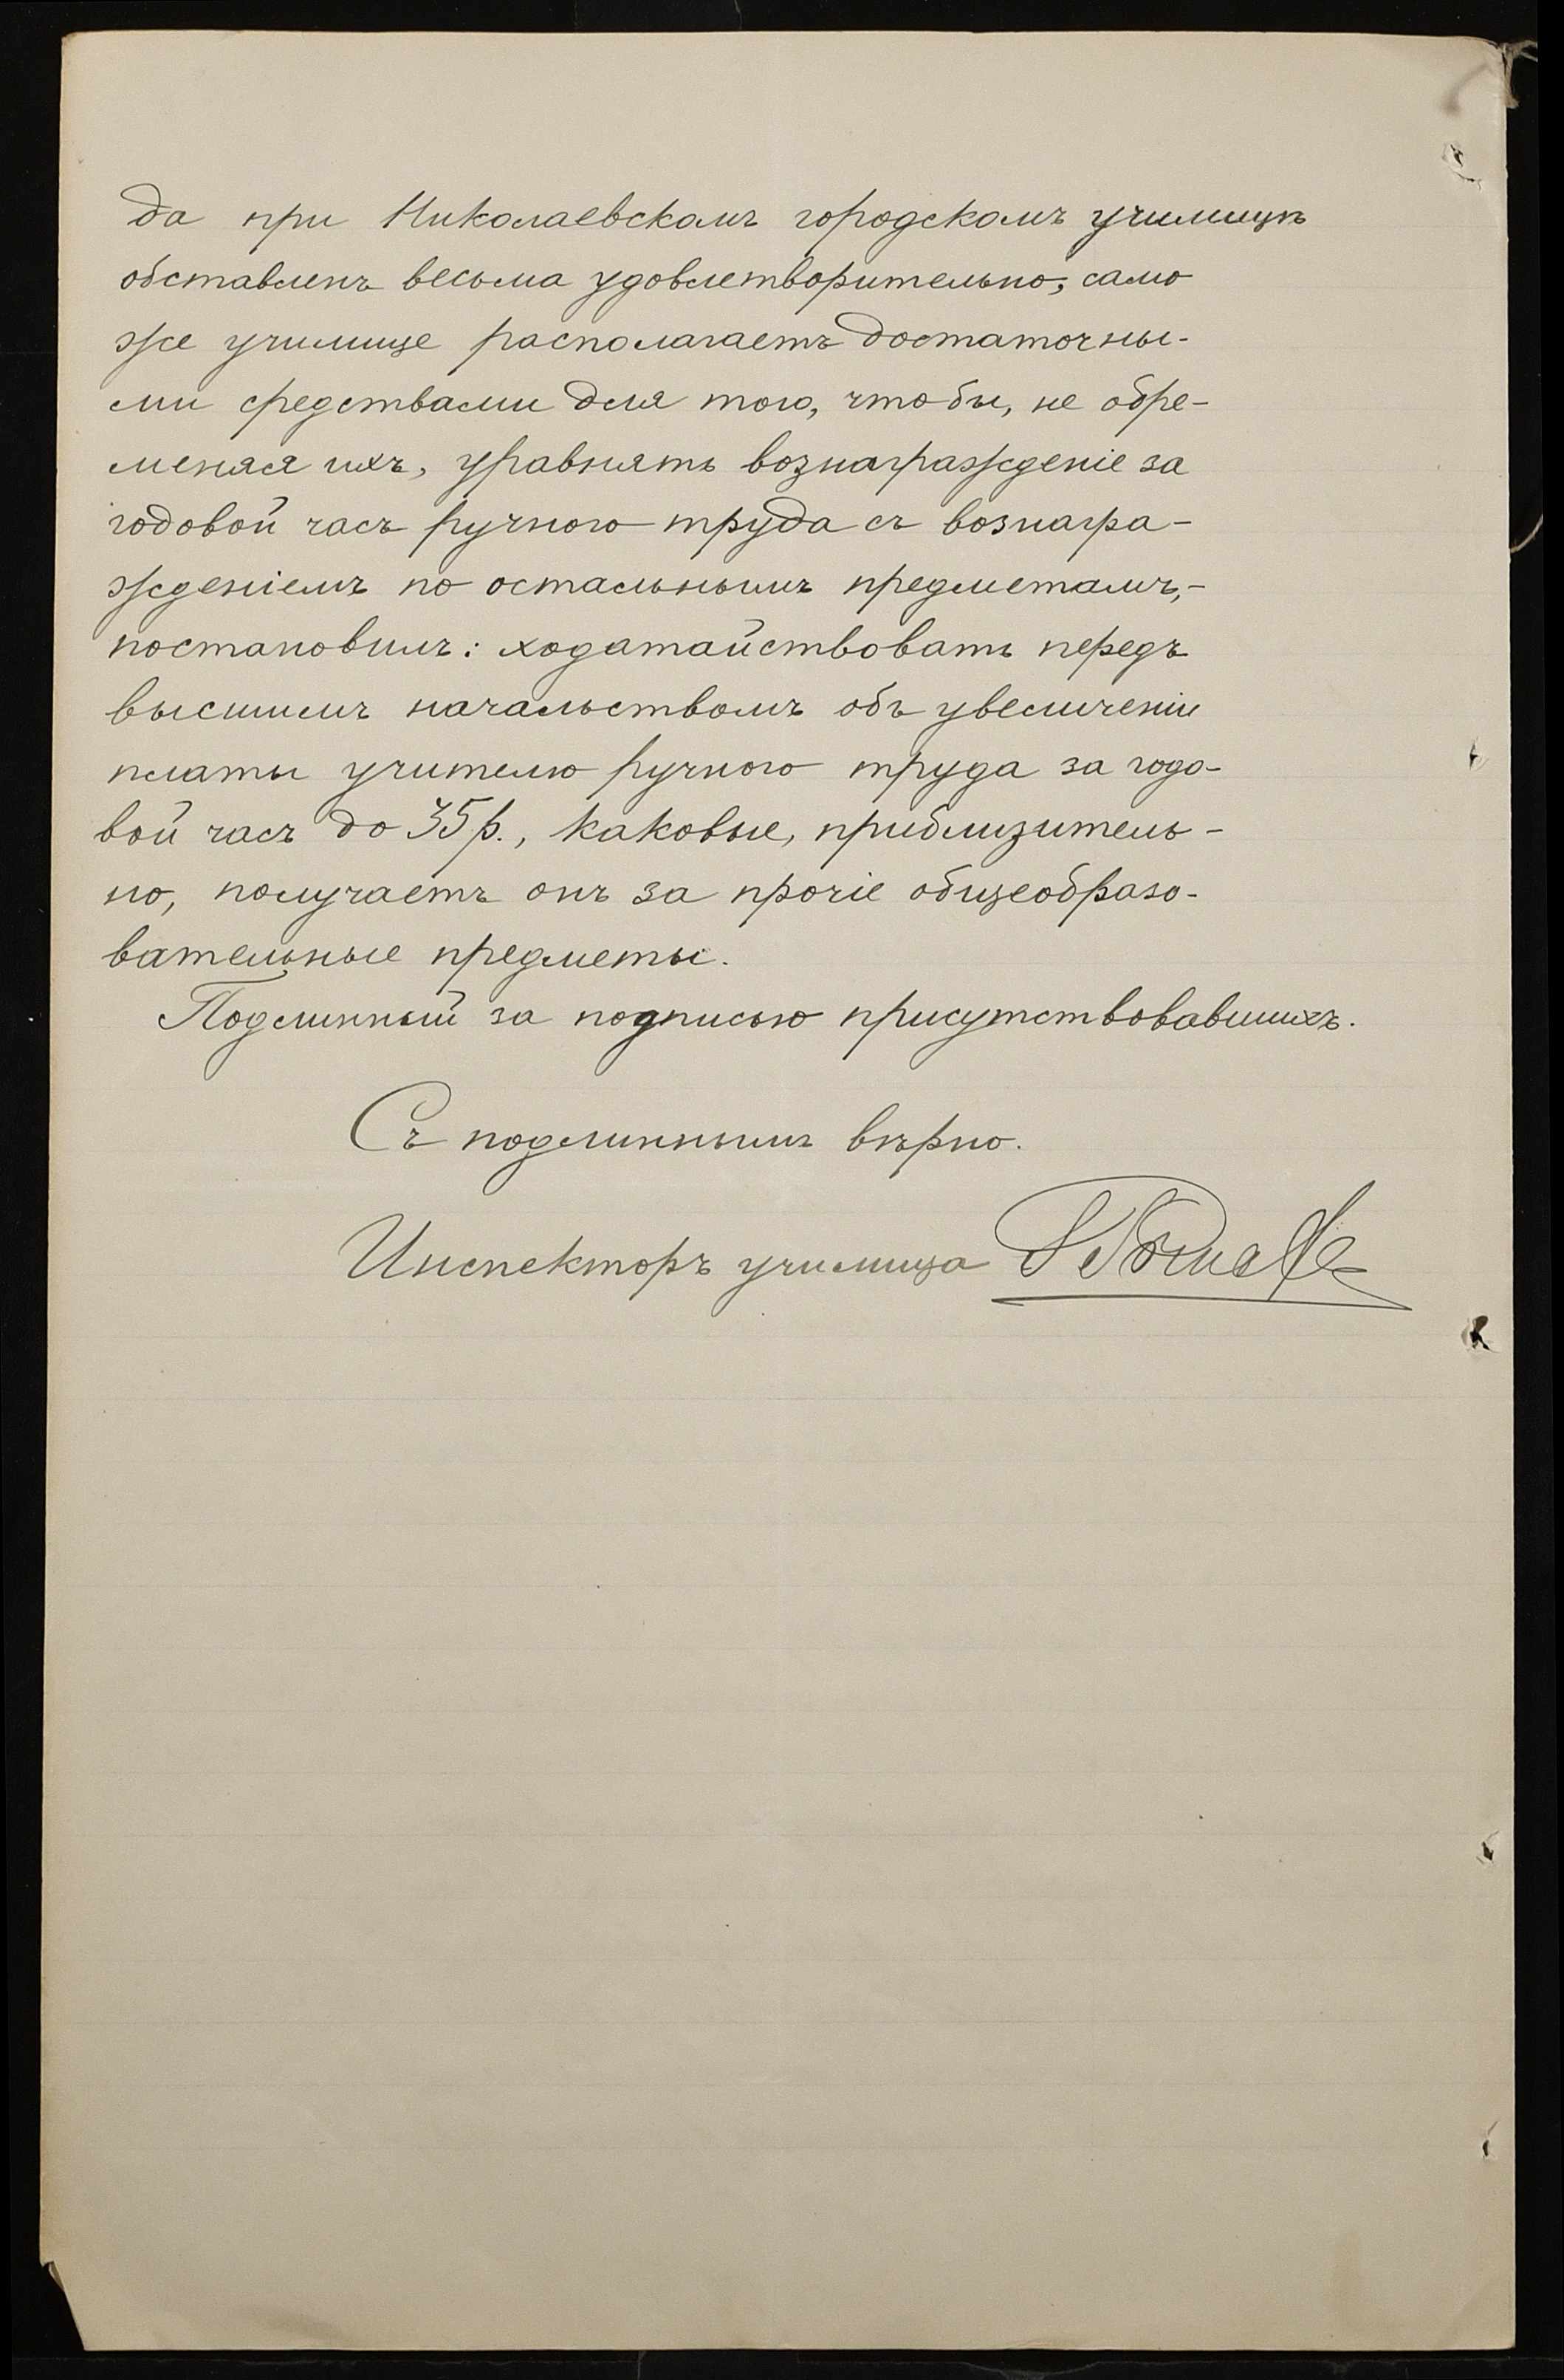 да при Николаевскомъ городскомъ училищѣ
обставленъ весьма удовлетворительно, само
же училище располагаетъ достаточны-
ми средствами для того, чтобы, не обре-
меняя ихъ, уравнять вознагражденіе за
годовой часъ ручного труда съ вознагра-
жденіемъ по остальнымъ предметамъ,-
постановилъ: ходатайствовать передъ
высшимъ начальствомъ объ увеличеніи
платы учителю ручного труда за годо-
вой часъ до 35 р., каковые, приблизитель-
но, получаетъ онъ за прочіе общеобразо-
вательные предметы.
Подлинный за подписью присутствовавшихъ.
Съ подлиннымъ вѣрно.
Инспекторъ училища